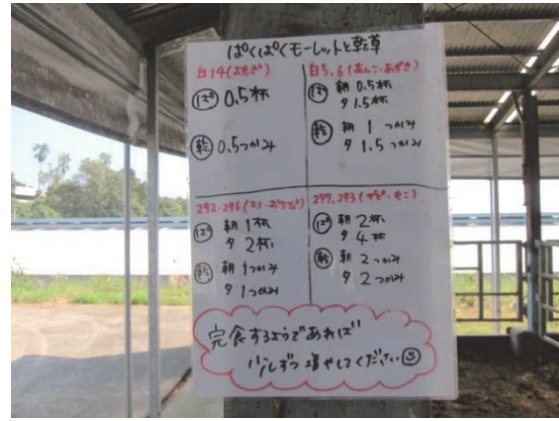 ぱくぱくモーレットと乾草
白14(よもぎ)
ぱ 0.5杯
乾 0.5つかみ
白5.6(あんこ・あずき)
ぱ 朝 0.5杯
夕 1.5杯
乾 朝 1つかみ
夕 1.5つかみ
292.296(
ぱ 朝 1杯
夕 2杯
乾 朝 1つかみ
夕 1つかみ
297.293(
ぱ 朝 2杯
夕 4杯
乾 朝 2つかみ
夕 2つかみ
完食するようであれば
少しずつ増やしてください